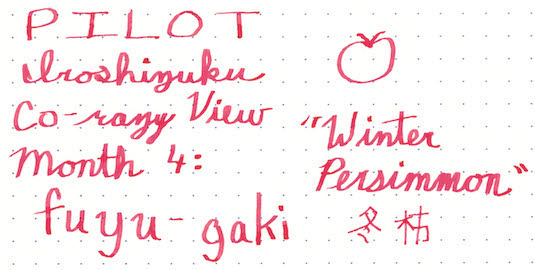 PILOT
Iroshizuku
Co-razy View
Month 4:
fuyu-gaki
"Winter
Persimmon"
冬柿